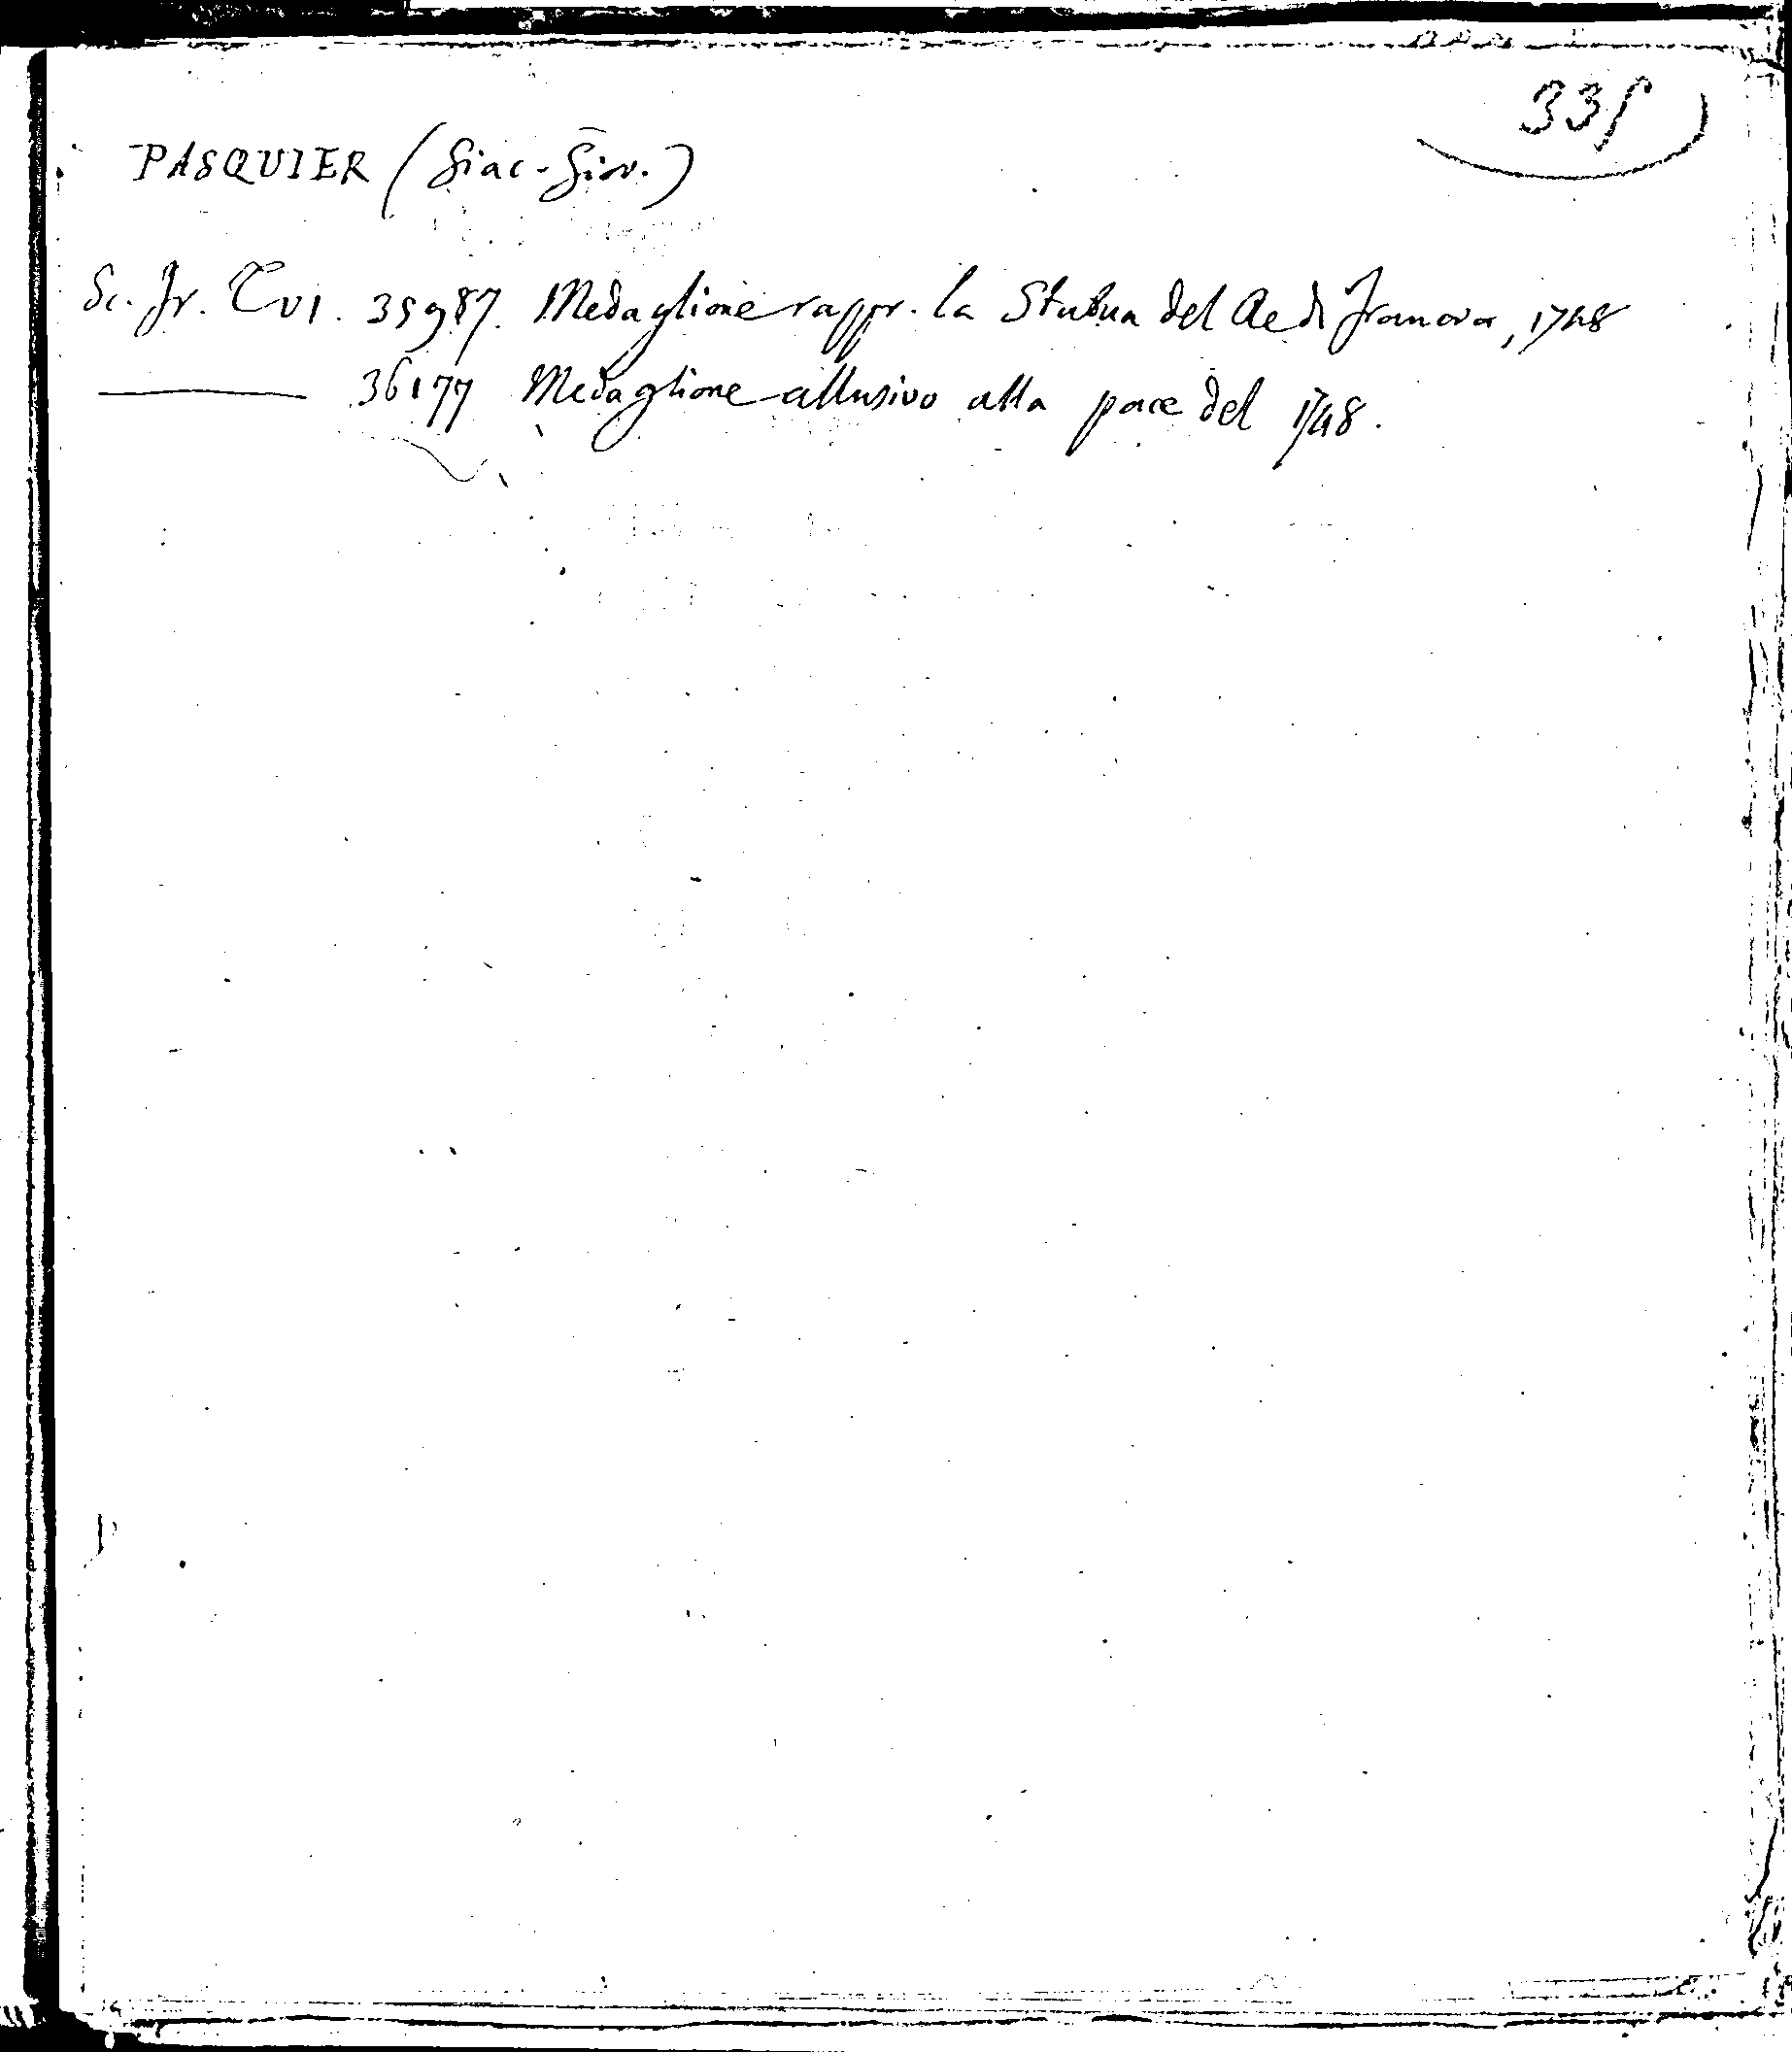 335
PASQUIER (Giac-Giov.)
Sc. Fr. T VI. 35987. Medaglione rappr. la Statua del Re di Francia, 1748
——— 36177 Medaglione allusivo alla pace del 1748.